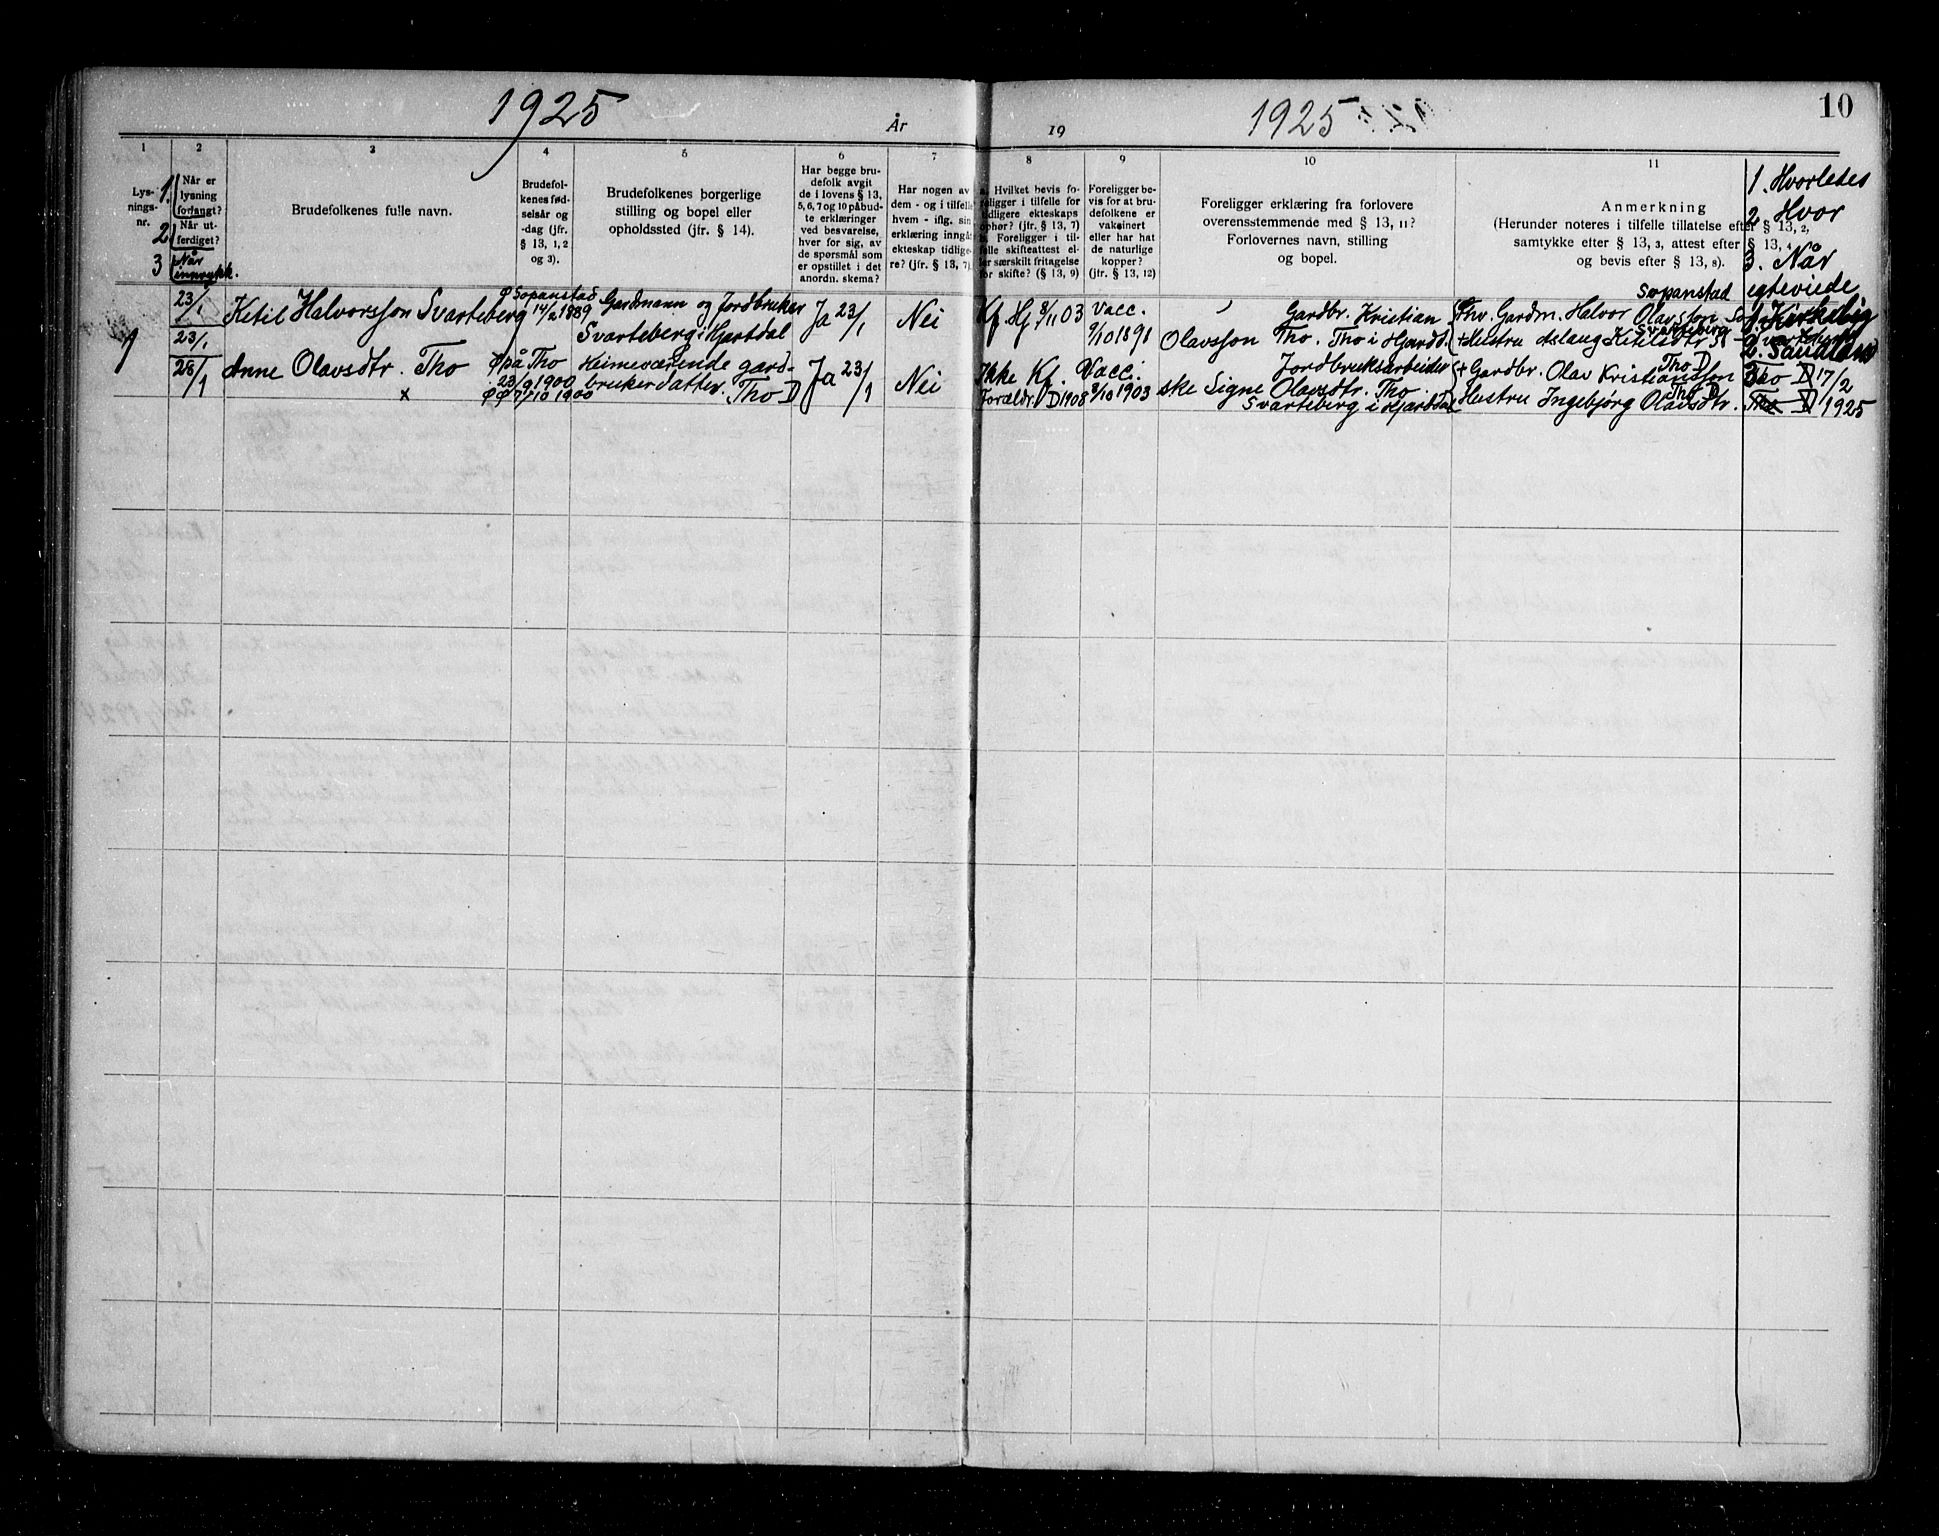 1925
År
19
1925
10
1
2
3
4
5
6
7
8
9
10
11
Lys-
nings-
nr.
1.
2
3
Når er
lysning
forlangt?
Når ut-
ferdiget?
Når
innrykk.
Brudefolkenes fulle navn.
Brudefol-
kenes fød-
selsår og
-dag (jfr.
§ 13, 1, 2
og 3).
Brudefolkenes borgerlige
stilling og bopel eller
opholdssted (jfr. § 14).
Har begge bru-
defolk avgit
de i lovens § 13,
5, 6, 7 og 10 påbud-
te erklæringer
ved besvarelse,
hver for sig, av
de spørsmål som
er opstillet i det
anordn. skema?
Har nogen av
dem - og i tilfelle
hvem - iflg. sin
erklæring inngåt
ekteskap tidlige-
re? (jfr. § 13, 7).
a. Hvilket bevis fo-
religger i tilfelle for
tidligere ekteskaps
ophør? (jfr. § 13, 7)
b. Foreligger i til-
felle skifteattest el-
ler særskilt fritagelse
for skifte? (§ 13, 9)
Foreligger be-
vis for at bru-
defolkene er
vaksinert
eller har hat
de naturlige
kopper?
(jfr. § 13, 12)
Foreligger erklæring fra forlovere
overensstemmende med § 13, 11?
Forlovernes navn, stilling
og bopel.
Anmerkning
(Herunder noteres i tilfelle tillatelse efter § 13, 2,
samtykke efter § 13, 3, attest efter § 13, 4
og bevis efter § 13, 8).
1. Hvorledes
2. Hvor
3. Når
egteviede
1
23/1
23/1
28/1
Ketil Halvorsson Svarteberg
Anne Olavsdtr. Tho
x
Ø Sopanstad
14/2 1889
Ø på Tho
23/9 1900
ØØ 7/10 1900
Gardmann og Jordbruker
Svarteberg i Hjartdal
Heimeværende gard-
brukerdatter. Tho D
Ja 23/1
Ja 23/1
Nei
Nei
Kf. Hj 8/11 03
Ikke Kf.
Forældr. D 1908
Vacc.
9/10 1891
Vacc.
8/10 1903
Gardbr. Kristian
Olavsson Tho. Tho i Hjardd.
Jordbruksarbeider
ske Signe Olavsdtr. Tho
Svarteberg i Hjardda
Sopanstad
Fhv. Gardm. Halvor Olavsson
Svarteberg
+ Hustru Aslaug Ketilsdtr
Tho D
+ Gardbr. Olav Kristiansson
Tho D
Hustru Ingebjørg Olavsdtr.
1. Kirkelig
2. Sauland
3. Tho D 17/2
Tho D 1925